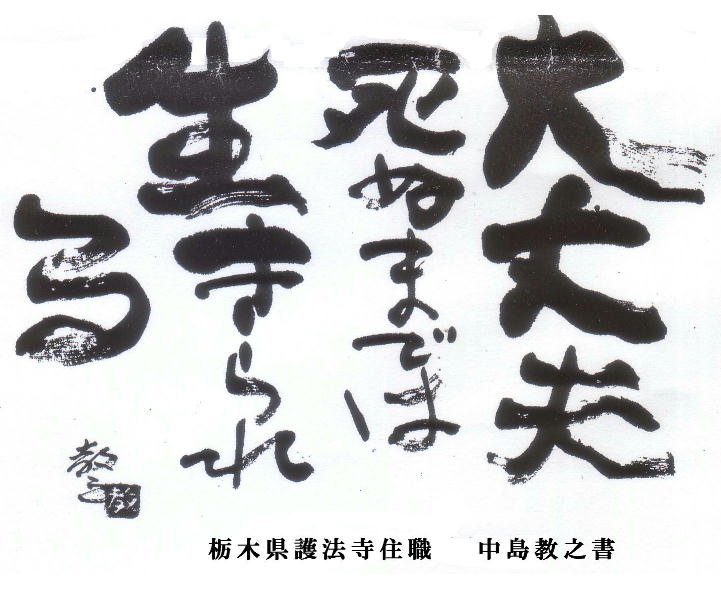 大丈夫
死ぬまでは
生きられ
る
教之
教
栃木県護法寺住職 中島教之書